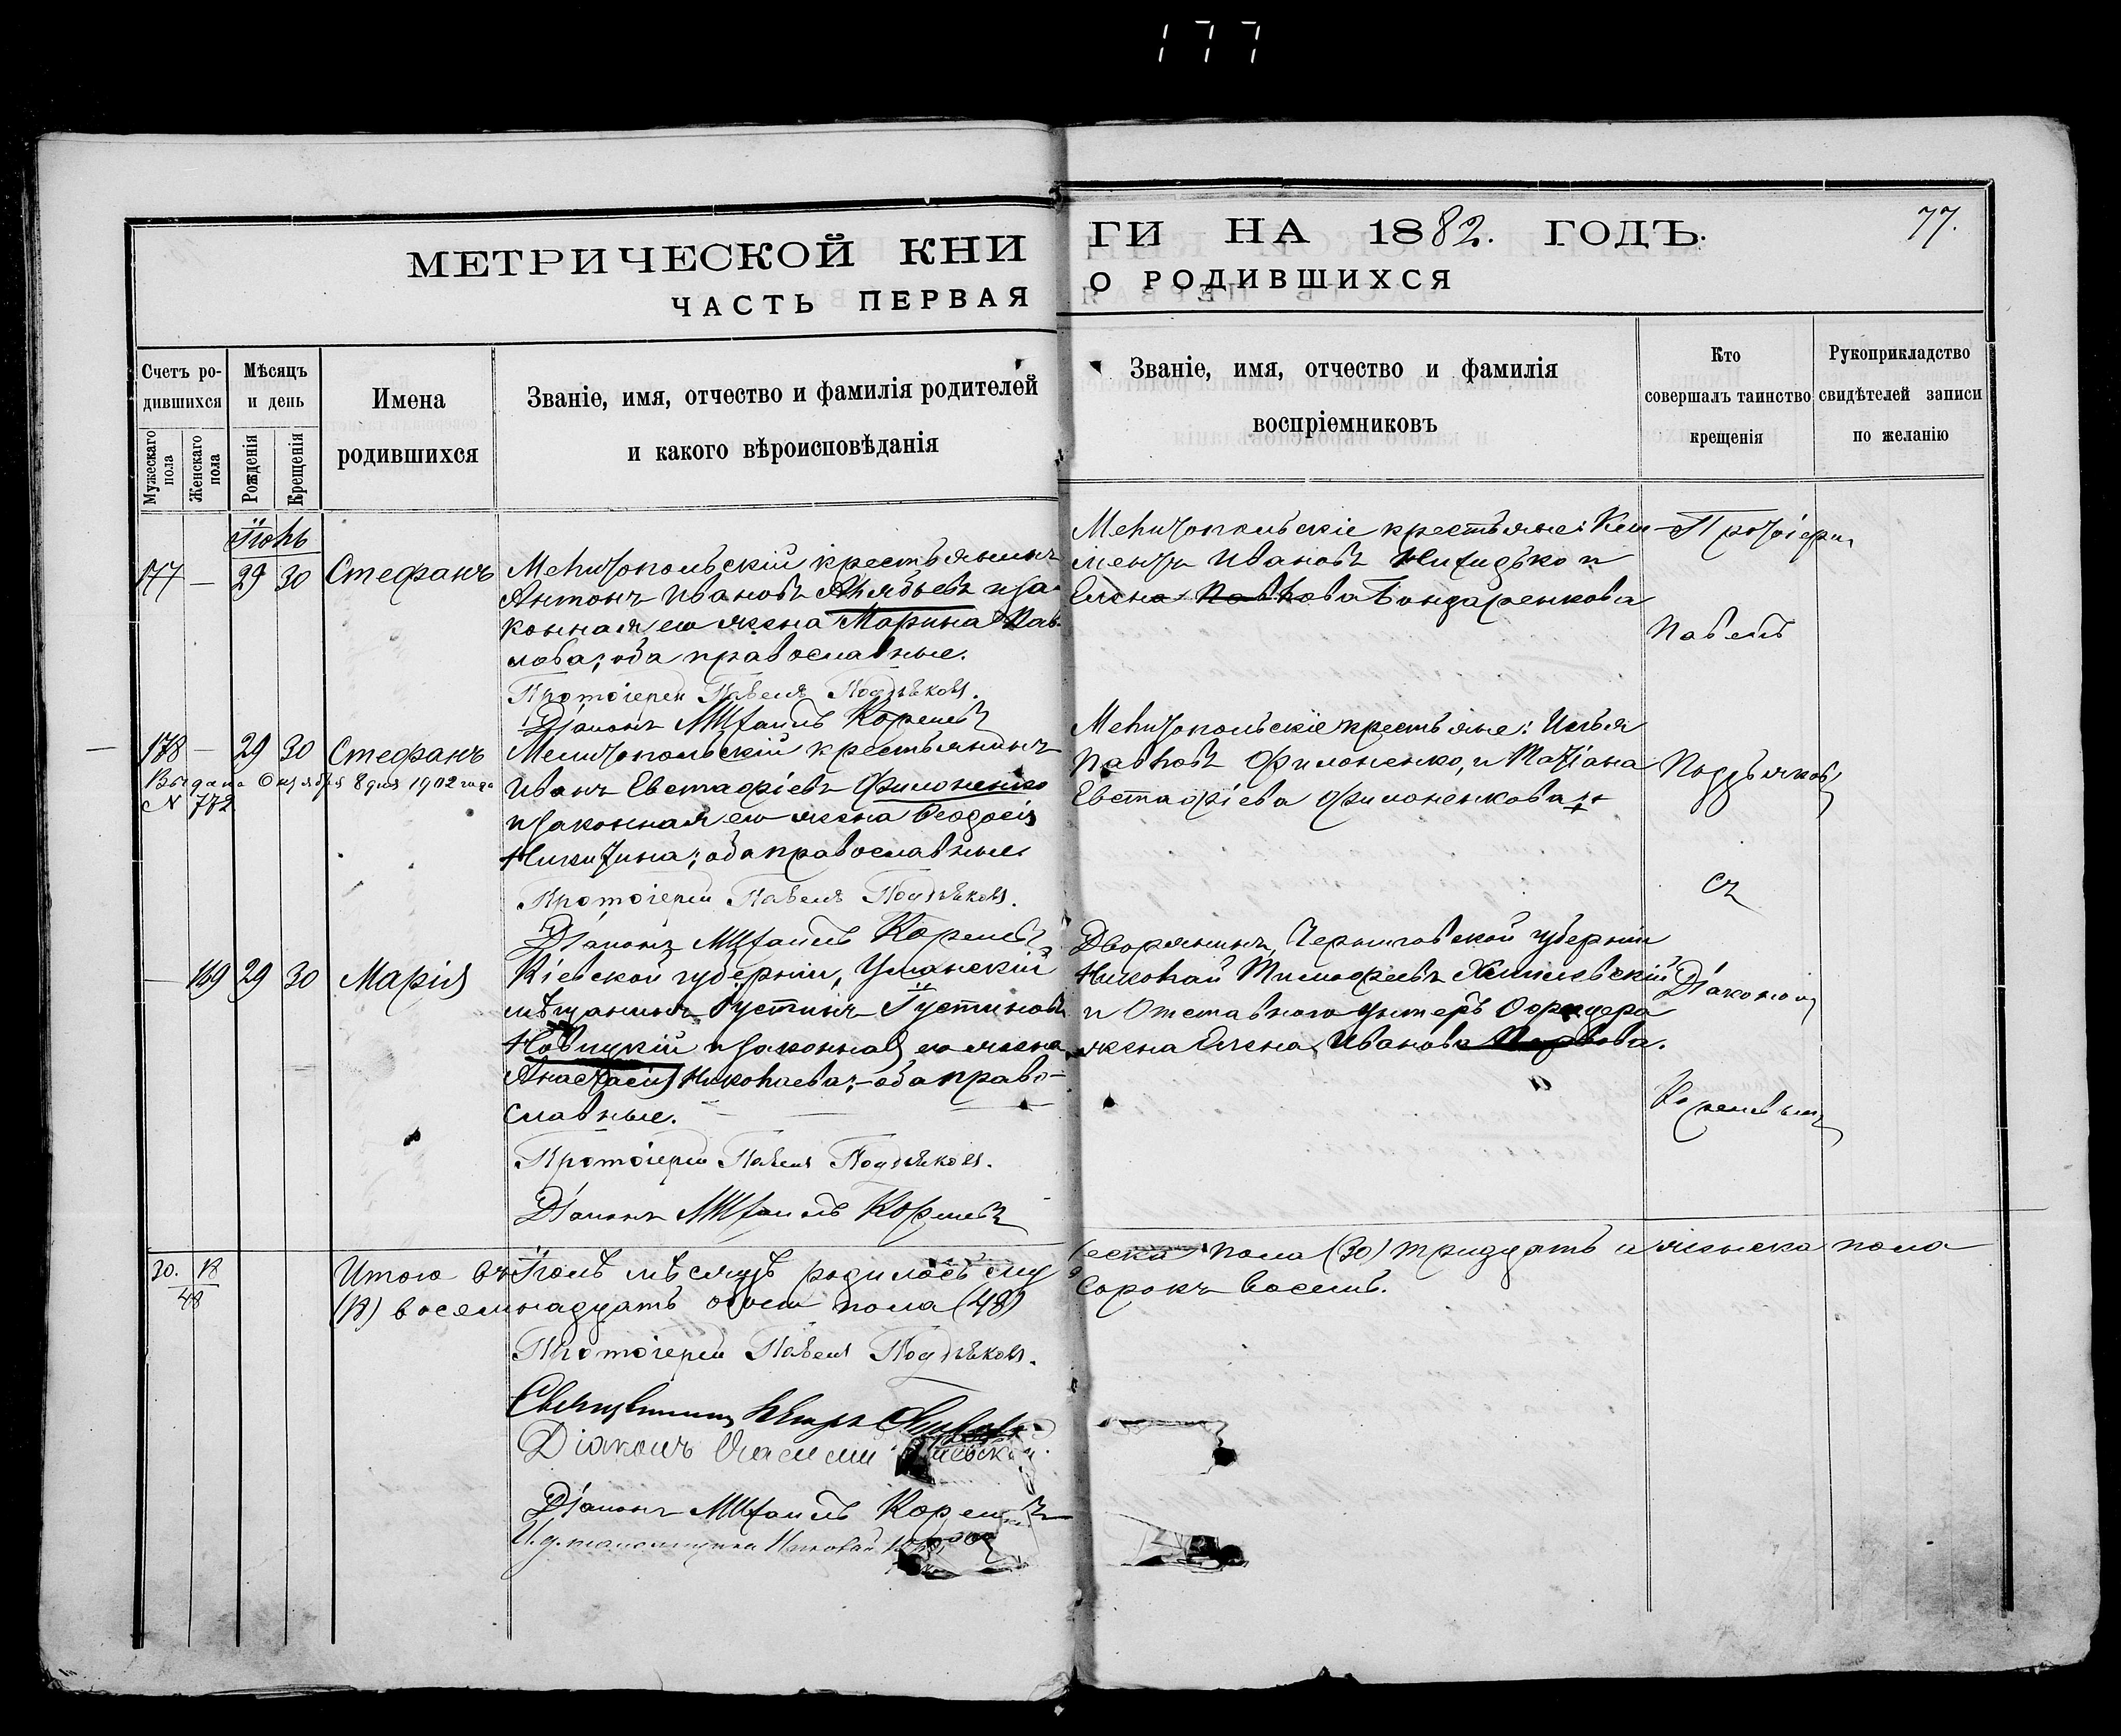 177
МЕТРИЧЕСКОЙ КНИ ГИ НА 1882. ГОДЪ. 77.
ЧАСТЬ ПЕРВАЯ О РОДИВШИХСЯ
Счетъ ро-
дившихся
Мужескаго пола
Женскаго пола
Мѣсяцъ
и день
Рожденія
Крещенія
Имена
родившихся
Званіе, имя, отчество и фамилія родителей
и какого вѣроисповѣданія
Званіе, имя, отчество и фамилія
воспріемниковъ
Кто
совершалъ таинство
крещенія
Рукоприкладство
свидѣтелей записи
по желанію
Іюнь
177 — 29 30 Стефанъ
Мелитопольскій крестьянинъ
Антонъ Ивановъ и за-
конная его жена Марина Пав-
лова; оба православные.
Протоіерей Павелъ Поддьяковъ.
Діаконъ Михаилъ Кореневъ
Мелитопольскіе крестьяне:
Ивановъ и
Елена Павлова Бондаренкова
178 — 29 30 Стефанъ
Выдана Октября 8 дня 1902 года
N 772
Мелитопольскій крестьянинъ
Иванъ Евстафіевъ Филоненко
и законная его жена Ѳеодосія
Никитина; оба православные.
Протоіерей Павелъ Поддьяковъ.
Діаконъ Михаилъ Кореневъ
Мелитопольскіе крестьяне: Илья
Павловъ Филоненко, и Татіана
Евстафіева Филоненкова
— 169 29 30 Марія
Кіевской губерніи, Уманскій
мѣщанинъ Іустинъ Іустиновъ
Новицкій и законная его жена
Анастасія Николаева; — оба право-
славные.
Протоіерей Павелъ Поддьяковъ.
Діаконъ Михаилъ Кореневъ
Дворянинъ Черниговской губерніи
Николай Тимофеевъ
и Отставного Унтеръ Офицера
жена Елена Иванова
Протоіерей
Павелъ
Поддьяковъ
съ
Діакономъ
Кореневымъ
30. 18
48
Итого въ Іюнѣ мѣсяцѣ родилось муж
еска пола (30) тридцать и женска пола
(18) восемнадцать обоего пола (48)
сорокъ восемь.
Протоіерей Павелъ Поддьяковъ.
Священникъ Петръ
Діаконъ
Діаконъ Михаилъ Кореневъ
И. д. псаломщика Николай